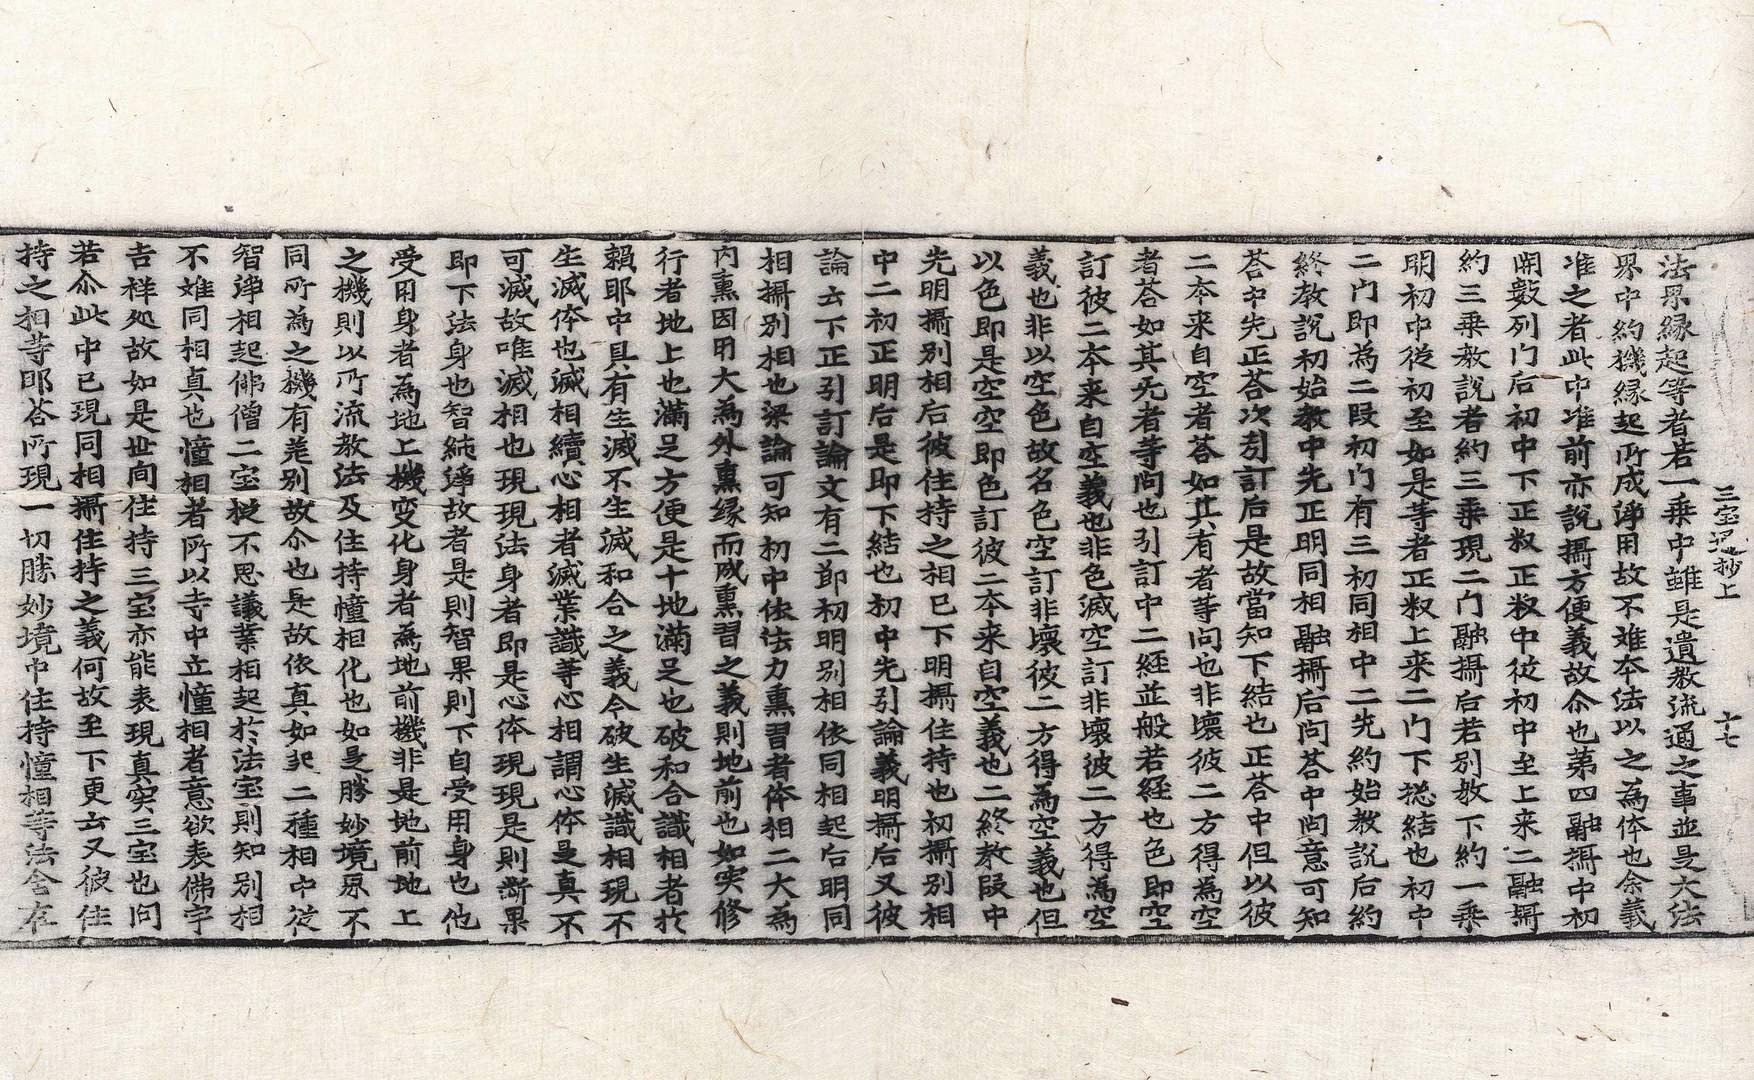 三宝□抄上　十七
法界縁起等者若一乗中雖是遺教流通之事並是大法
界中約機縁起所成浄用故不难本法以之為体也余義
准之者此中准前亦説攝方便義故尒也第四融攝中初
開數列门后初中下正叙正叙中從初中至上来二融攝
约三乗教説者约三乗現二门融攝后若别教下约一乗
明初中從初至如是等者正叙上来二门下捴結也初中
二门即為二段初门有三初同相中二先約始教説后約
終教説初始教中先正明同相融攝后问荅中问意可知
荅中先正荅次引訂后是故當知下結也正荅中但以彼
二本来自空者荅如其有者等问也非壊彼二方得為空
者荅如其无者等问也引訂中二経並般若経也色即空
訂彼二本来自空義也非色滅空訂非壊彼二方得為空
義也非以空色故名色空訂非壊彼二方得為空義也但
以色即是空空即色訂彼二本来自空義也二終教段中
先明攝别相后彼住持之相已下明攝住持也初攝别相
中二初正明后是即下結也初中先引論義明攝后又彼
論云下正引訂論文有二節初明别相依同相起后明同
相攝别相也梁論可知初中依法力熏習者体相二大為
内熏因用大為外熏縁而成熏習之義則地前也如实修
行者地上也滿足方便是十地滿足也破和合識相者於
頼耶中具有生滅不生滅和合之義今破生滅識相現不
生滅体也滅相續心相者滅業識等心相謂心体是真不
可滅故唯滅相也現現法身者即是心体現現是則断果
即下法身也智純浄故者是則智果則下自受用身也他
受用身者為地上機变化身者為地前機非是地前地上
之機則以所流教法及住持憧相化也如是勝妙境界不
同所為之機有差别故尒也是故依真如起二種相中從
智浄相起佛僧二宝従不思議業相起於法宝則知别相
不难同相真也憧相者所以寺中立憧相者意欲表佛宇
吉祥処故如是世间住持三宝亦能表現真实三宝也问
若尒此中已現同相攝住持之義何故至下更云又彼住
持之相等耶荅所現一切勝妙境中住持憧相等法含在